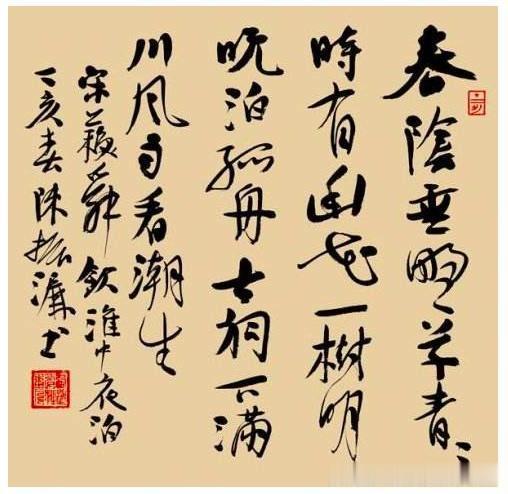 春陰垂野草青〻
時有幽花一樹明
晚泊孤舟古祠下滿
川風雨看潮生
宋蘇舜欽淮中夜泊
丁亥春陳振濂書